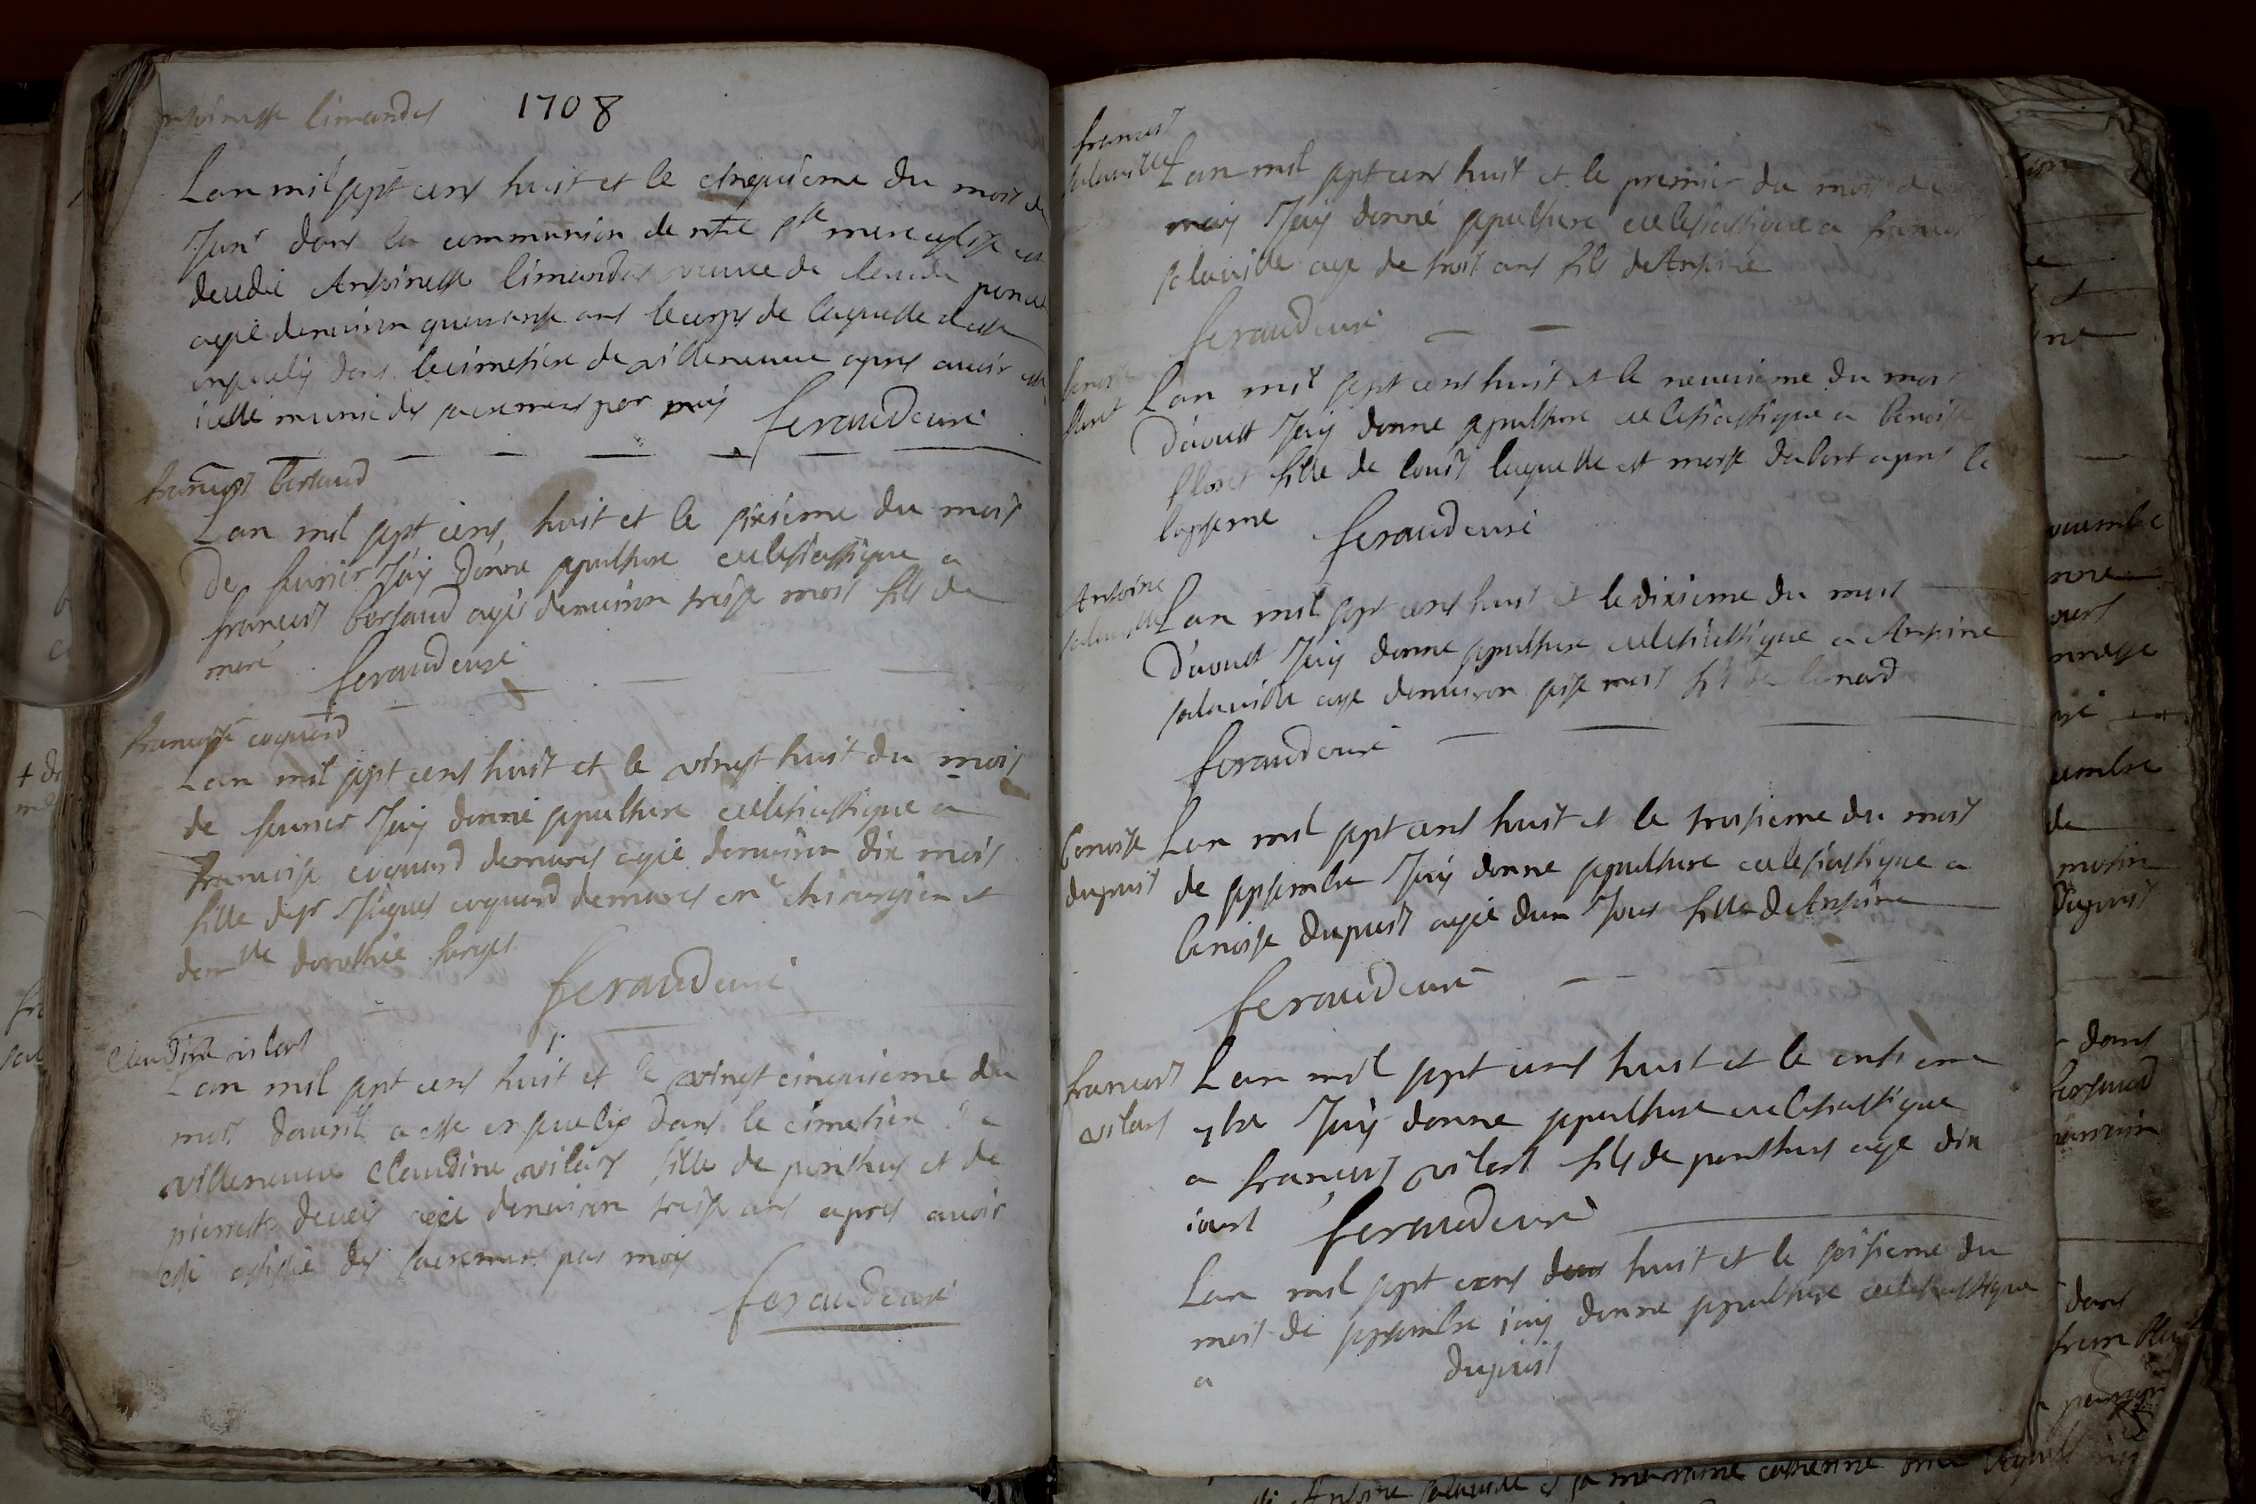 1708
Antoinette limandas
Lan mil sept cens huit et le cinquieme du mois de
Janr dans la communion de ntre ste mere eglise est
decedée Antoinette limandas veuve de claude
agée denviron quarante ans le corps de laquelle a esté
ensevely dans le cimetiere de villeneuve apres avoir esté
icelle munie des sacremens par moy feraud curé
francois bertaud
Lan mil sept cens huit et le sixieme du mois
de fevrier Jay donne sepulture eclesiastique a
francois bertaud agé denviron treise mois fils de
feraud curé
francoise coquard
Lan mil sept cens huit et le vingt huit du mois
de fevrier Jay donné sepulture eclesiastique a
francoise coquard demares agée denviron dix mois
fille de sr Jaques coquard demares me chirurgien et
demlle dorothée farges
feraud curé
Claudine vilars
Lan mil sept cens huit et le vingt cinquieme du
mois davril a esté ensevelis dans le cimetiere de
villeneuve Claudine vilars fille de ponthus et de
pierrette agée denviron treise ans apres avoir
esté assistée des sacremens par moy
feraud curé
francois
salaville
Lan mil sept cens huit et le premier du mois de
may Jay donné sepulture eclesiastique a francois
salaville agé de trois ans fils de Antoine
feraud curé
benoiste
floret
Lan mil sept cens huit et le neuvieme du mois
d'aoust Jay donne sepulture eclesiastique a benoiste
floret fille de louis laquelle est morte dabort apres le
bapteme feraud curé
Antoine
salaville
Lan mil sept cens huit et le dixieme du mois
d'aoust Jay donne sepulture eclesiastique a Antoine
salaville agé denviron seise mois fils de lenard
feraud curé
benoiste
dupuis
Lan mil sept cens huit et le troisieme du mois
de septembre Jay donne sepulture eclesiastique a
benoiste dupuis agée dun Jour fille de Antoine
feraud curé
francois
vilars
Lan mil sept cens huit et le onsieme
7bre Jay donne sepulture eclesiastique
a francois vilars fils de ponthus agé dix
jours feraud curé
Lan mil sept cens huit et le seisieme du
mois de septembre jay donne sepulture eclesiastique
a dupuis